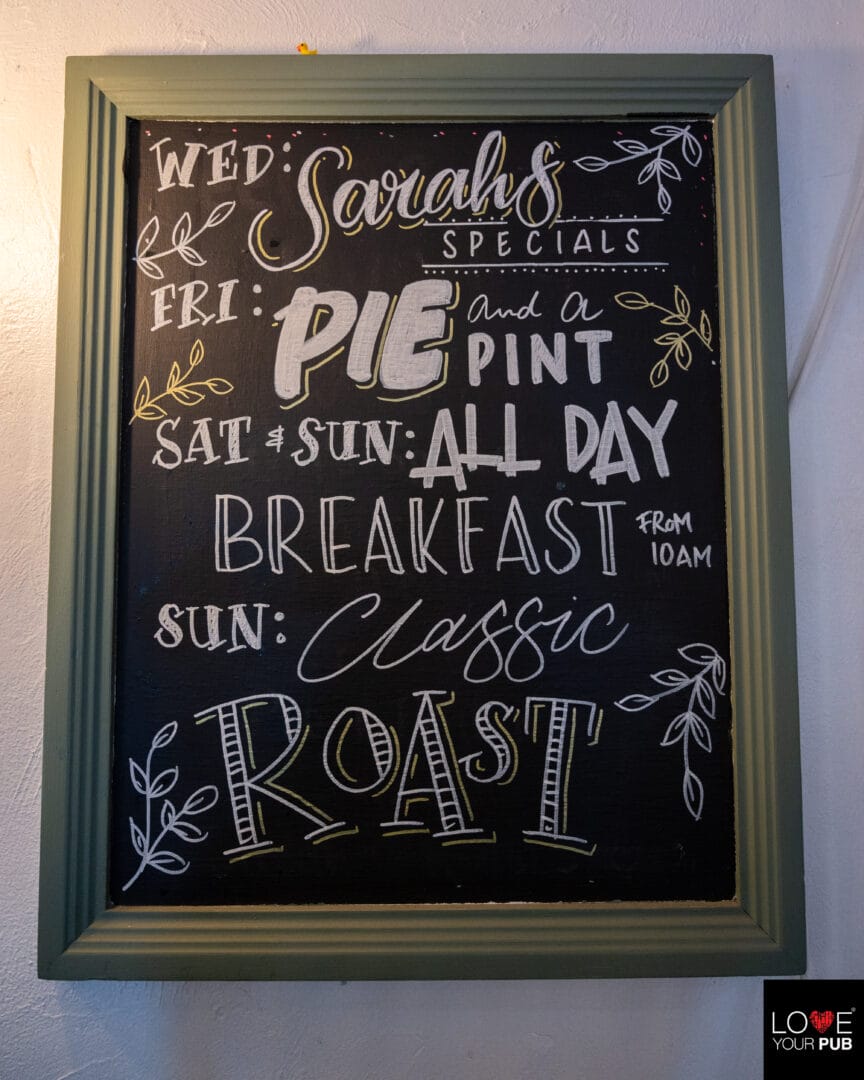 WED: Sarahs
SPECIALS
FRI: PIE and a
PINT
SAT & SUN: ALL DAY
BREAKFAST FROM
10AM
SUN: Classic
ROAST
LOVE
YOUR PUB